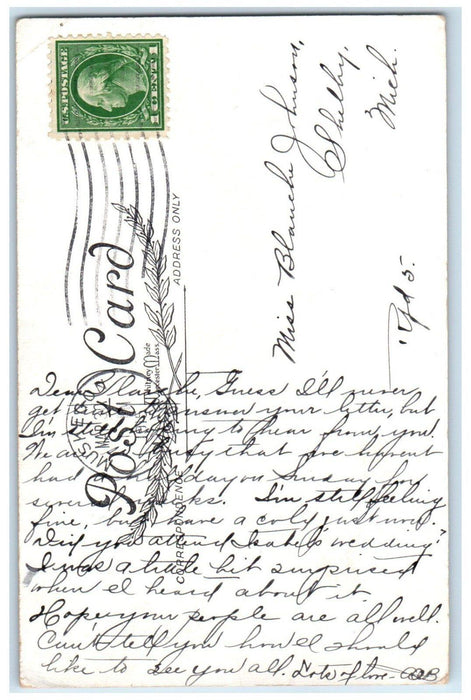 U.S. POSTAGE
1 CENT 1
Post Card
CORRESPONDENCE
ADDRESS ONLY
Made
Mass.
Miss Blanche Johnson,
Shelby,
Mich.
Dear Blanche, Guess I'll never
get answer your letter, but
I'm still to hear from you.
We that we havent
had day on Sunday for
I'm still feeling
fine, but have a cold just now.
Did you attend wedding?
I was a little bit surprised
when I heard about it.
Hope your people are all well.
Can't tell you how I should
like to see you all. Lots of love -